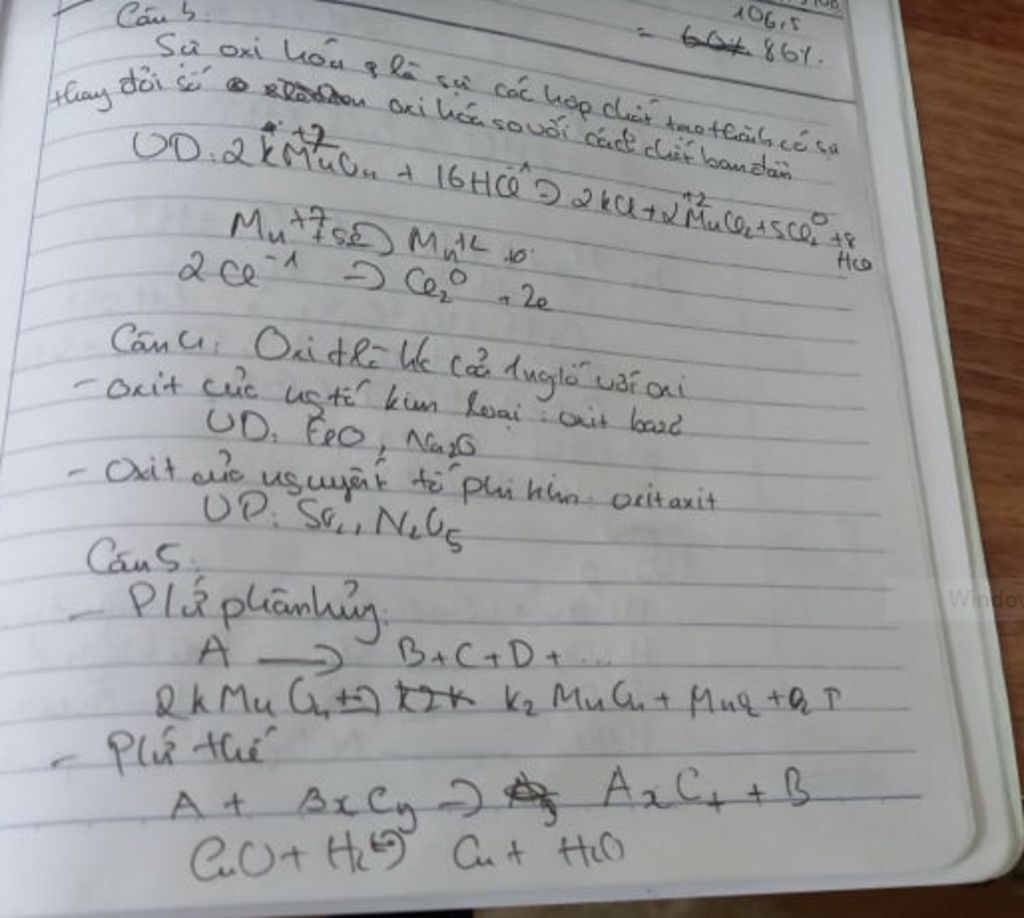 106,5
= 86%.
Câu 3.
Sự oxi hóa là sự các hợp chất tạo thành có sự
thay đổi số oxi hóa so với các chất ban đầu
VD: 2KMnO4 + 16HCl → 2KCl + 2MnCl2 + 5Cl2 + 8
+7 -1 +2 0
H2O
Mn+7 +5e → Mn+2
2Cl-1 → Cl2 0 + 2e
Câu 4: Oxit là hc của 1 ngtố với oxi
- Oxit của ngtố kim loại: oxit bazơ
VD: FeO, Na2O
- Oxit của nguyên tố phi kim: oxit axit
VD: SO2, N2O5
Câu 5.
- Pứ phân hủy:
A → B + C + D + ...
2KMnO4 → K2MnO4 + MnO2 + O2 ↑
- Pứ thế
A + BxCy → AxCy + B
CuO + H2 → Cu + H2O
Windo